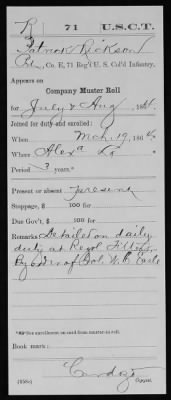 R 71 U.S.C.T.
Patrick Rickson
Co. E, 71 Reg't U. S. Col'd Infantry.
Appears on
Company Muster Roll
for July & Aug, 1864.
Joined for duty and enrolled:
When Mch 19, 1864.
Where Alexa La
Period 3 years.*
Present or absent present
Stoppage, $ 100 for
Due Gov't, $ 100 for
Remarks Detailed on daily
duty at Regl
By order of Col. W. C. Earle
*See enrollment on card from muster-in roll.
Book mark:
(358c) Copyist.